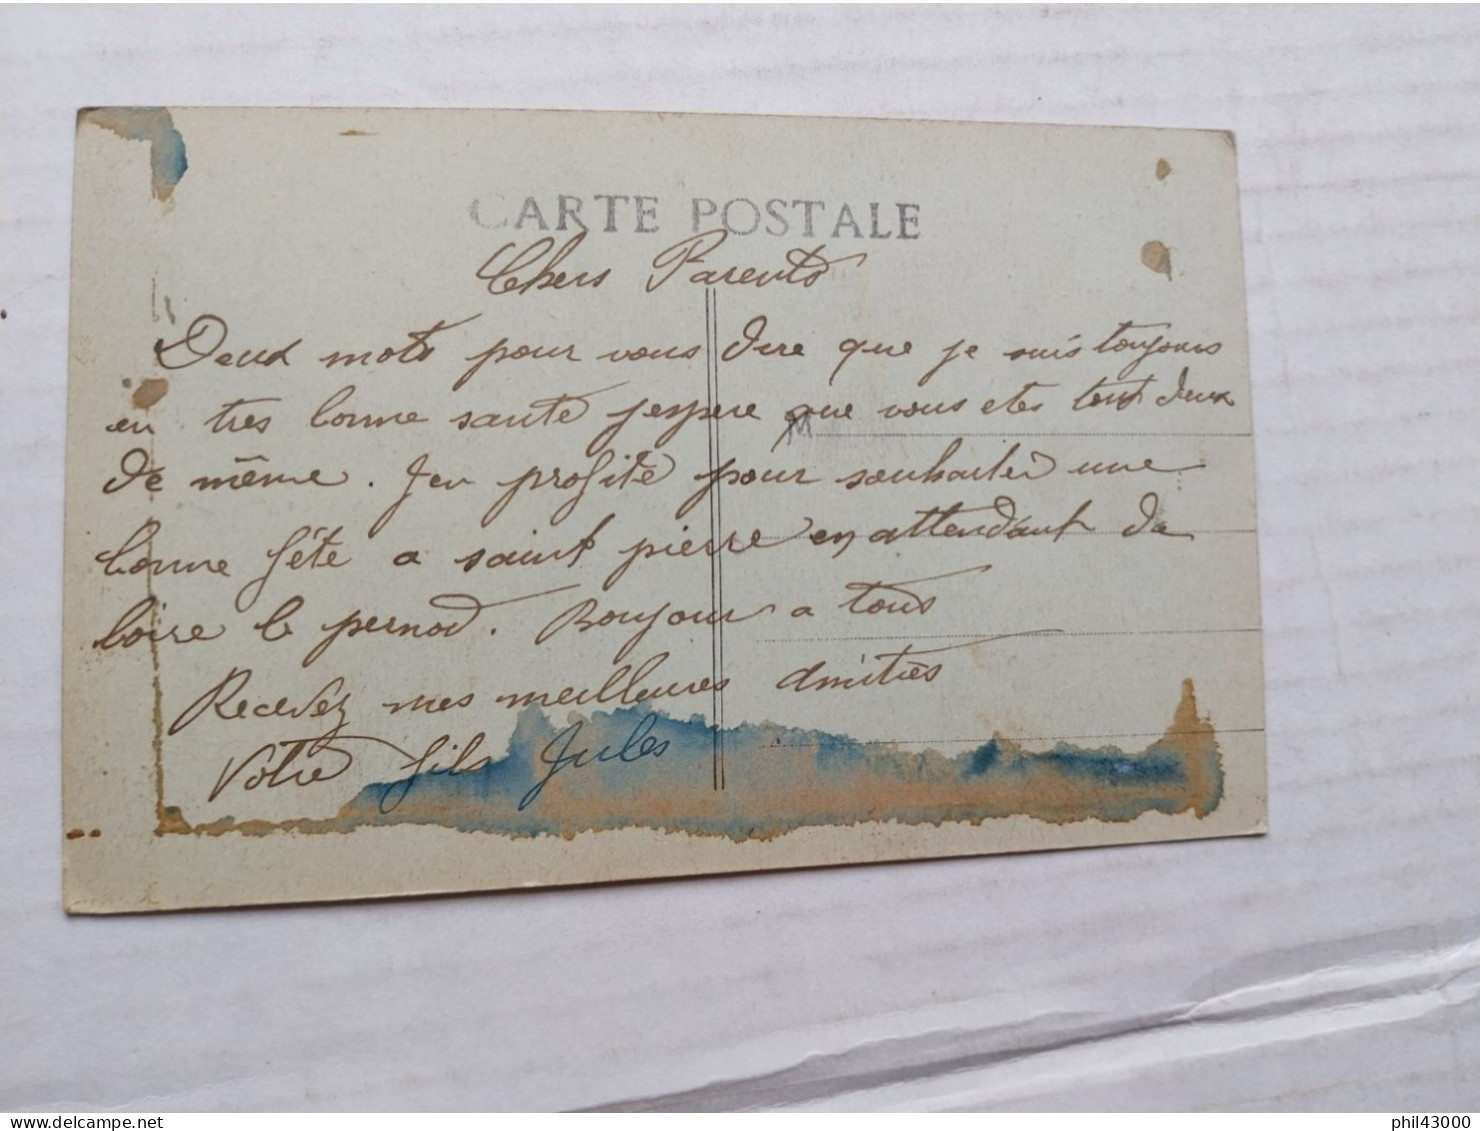 CARTE POSTALE
Chers Parents
Deux mots pour vous dire que je suis toujours
en tres bonne santé jespere que vous etes tout deux
de même. Jen profite pour souhaiter une
bonne fête a saint pierre en attendant de
boire le pernod. Bonjour a tous
Recevez mes meilleures amitiés
Votre fils Jules
phil43000